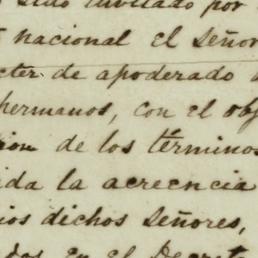 sido invitado por
nacional el Señor
cter de apoderado
hermanos, con el obj
ion de los términos
ida la acreencia
ios dichos Señores,
dos en el Decreto